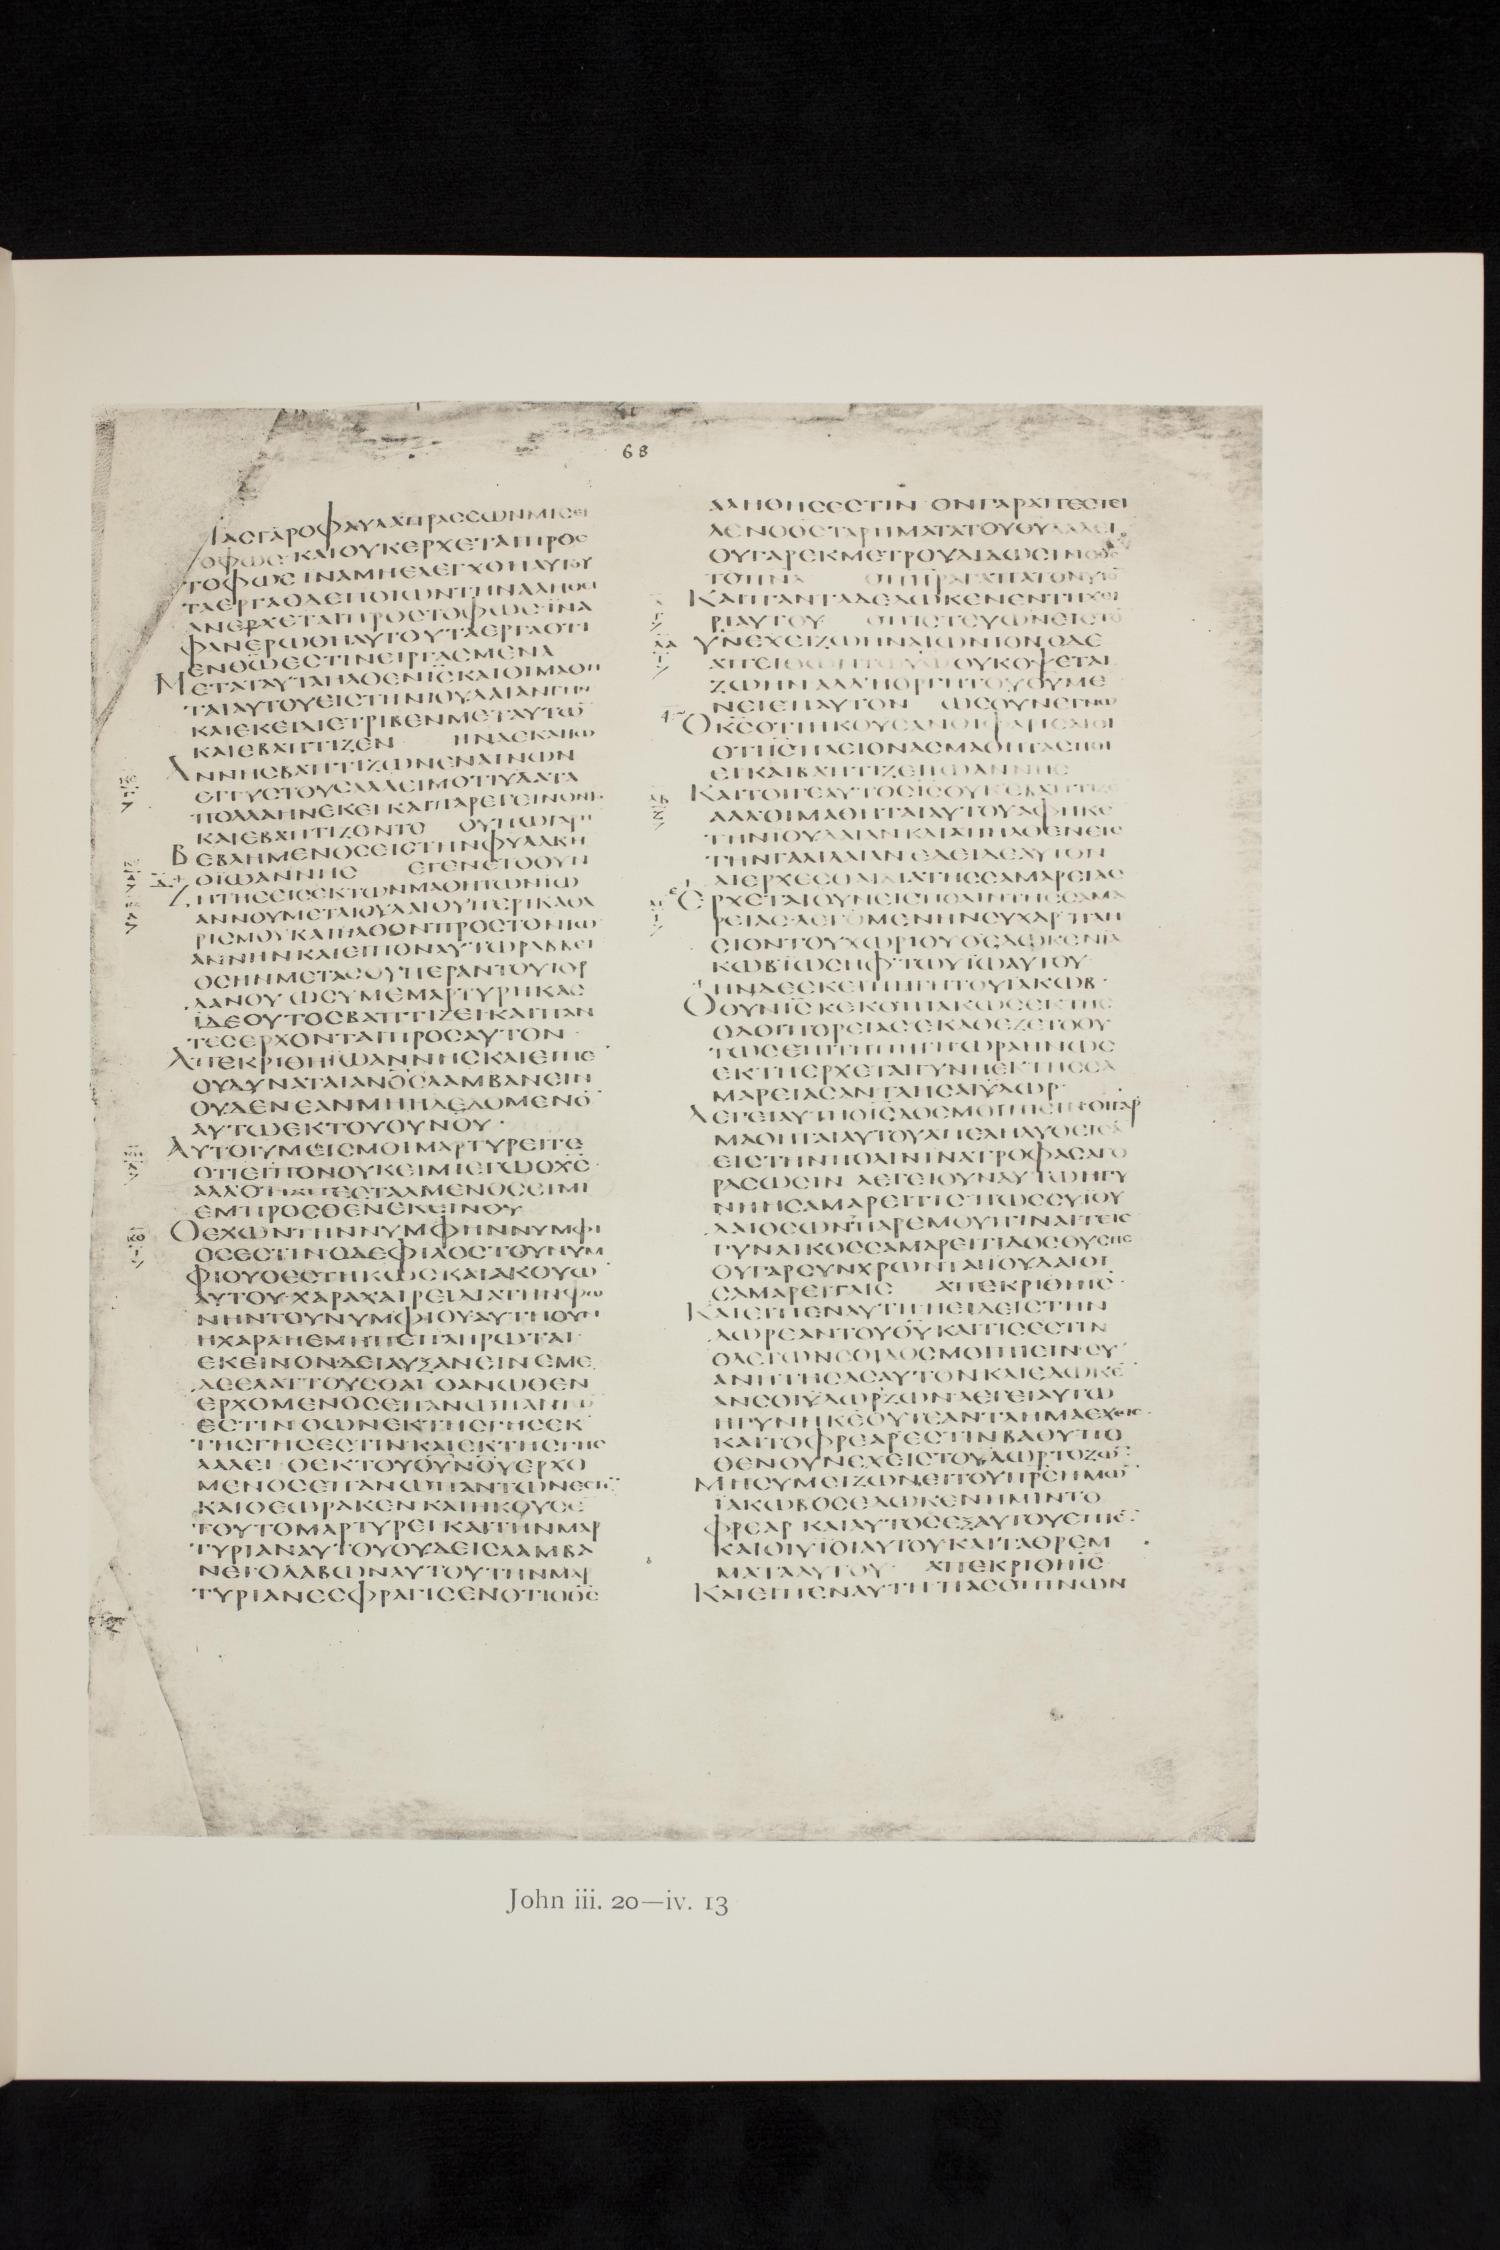 68
ΟΦΩΣ ΚΑΙΟΥΚΕΡΧΕΤΑΙΠΡΟΣ
ΤΟΦΩΣ ΙΝΑΜΗΕΛΕΓΧΘΗΑΥΤΟΥ
ΑΝΕΡΧΕΤΑΙΠΡΟΣΤΟΦΩΣΙΝΑ
ΦΑΝΕΡΩΘΗΑΥΤΟΥΤΑΕΡΓΑΟΤΙ
ΕΝΘΩΕΣΤΙΝΕΙΡΓΑΣΜΕΝΑ
ΜΕΤΑΤΑΥΤΑΗΛΘΕΝΙΣΚΑΙΟΙΜΑΘΗ
ΤΑΙΑΥΤΟΥΕΙΣΤΗΝΙΟΥΔΑΙΑΝΓΗΝ
ΚΑΙΕΚΕΙΔΙΕΤΡΙΒΕΝΜΕΤΑΥΤΩ
ΚΑΙΕΒΑΠΤΙΖΕΝ ΗΝΔΕΚΑΙΙΩ
ΑΝΝΗΣΒΑΠΤΙΖΩΝΕΝΑΙΝΩΝ
ΕΓΓΥΣΤΟΥΣΑΛΕΙΜΟΤΙΥΔΑΤΑ
ΠΟΛΛΑΗΝΕΚΕΙΚΑΙΠΑΡΕΓΕΙΝΟΝΤ
ΚΑΙΕΒΑΠΤΙΖΟΝΤΟ ΟΥΠΩΓΑΡΗ
ΒΕΒΛΗΜΕΝΟΣΕΙΣΤΗΝΦΥΛΑΚΗ
ΟΙΩΑΝΝΗΣ ΕΓΕΝΕΤΟΟΥΝ
ΖΗΤΗΣΕΙΣΕΚΤΩΝΜΑΘΗΤΩΝΙΩ
ΑΝΝΟΥΜΕΤΑΙΟΥΔΑΙΟΥΠΕΡΙΚΑΘΑ
ΡΙΣΜΟΥΚΑΙΗΛΘΟΝΠΡΟΣΤΟΝΙΩ
ΑΝΝΗΝΚΑΙΕΙΠΟΝΑΥΤΩΡΑΒΒΕΙ
ΟΣΗΝΜΕΤΑΣΟΥΠΕΡΑΝΤΟΥΙΟΡ
ΔΑΝΟΥ ΩΣΥΜΕΜΑΡΤΥΡΗΚΑΣ
ΙΔΕΟΥΤΟΣΒΑΠΤΙΖΕΙΚΑΙΠΑΝ
ΤΕΣΕΡΧΟΝΤΑΙΠΡΟΣΑΥΤΟΝ
ΑΠΕΚΡΙΘΗΙΩΑΝΝΗΣΚΑΙΕΙΠΕ
ΟΥΔΥΝΑΤΑΙΑΝΟΣΛΑΜΒΑΝΕΙΝ
ΟΥΔΕΝΕΑΝΜΗΗΔΕΔΟΜΕΝΟ
ΑΥΤΩΕΚΤΟΥΟΥΝΟΥ
ΑΥΤΟΙΥΜΕΙΣΜΟΙΜΑΡΤΥΡΕΙΤΕ
ΟΤΙΕΙΠΟΝΟΥΚΕΙΜΙΕΓΩΟΧΣ
ΕΜΠΡΟΣΘΕΝΕΚΕΙΝΟΥ
ΟΕΧΩΝΤΗΝΝΥΜΦΗΝΝΥΜΦΙ
ΟΣΕΣΤΙΝΟΔΕΦΙΛΟΣΤΟΥΝΥΜ
ΦΙΟΥΟΕΣΤΗΚΩΣΚΑΙΑΚΟΥΩ
ΑΥΤΟΥΧΑΡΑΧΑΙΡΕΙΔΙΑΤΗΝΦΩ
ΝΗΝΤΟΥΝΥΜΦΙΟΥΑΥΤΗΟΥΝ
ΗΧΑΡΑΗΕΜΗΠΕΠΛΗΡΩΤΑΙ
ΕΚΕΙΝΟΝΔΕΙΑΥΞΑΝΕΙΝΕΜΕ
ΔΕΕΛΑΤΤΟΥΣΘΑΙ ΟΑΝΩΘΕΝ
ΕΡΧΟΜΕΝΟΣΕΠΑΝΩΠΑΝΤΩ
ΕΣΤΙΝ ΟΩΝΕΚΤΗΣΓΗΣΕΚ
ΤΗΣΓΗΣΕΣΤΙΝΚΑΙΕΚΤΗΣΓΗΣ
ΛΑΛΕΙ ΟΕΚΤΟΥΟΥΝΟΥΕΡΧΟ
ΜΕΝΟΣΕΠΑΝΩΠΑΝΤΩΝΕΣΤΙ
ΚΑΙΟΕΩΡΑΚΕΝΚΑΙΗΚΟΥΣΕ
ΤΟΥΤΟΜΑΡΤΥΡΕΙΚΑΙΤΗΝΜΑΡ
ΤΥΡΙΑΝΑΥΤΟΥΟΥΔΕΙΣΛΑΜΒΑ
ΝΕΙΟΛΑΒΩΝΑΥΤΟΥΤΗΝΜΑΡ
ΤΥΡΙΑΝΕΣΦΡΑΓΙΣΕΝΟΤΙΟΘΣ
ΛΗΘΗΣΕΣΤΙΝ ΟΝΓΑΡΑΠΕΣΤΕΙ
ΛΕΝΟΘΣΤΑΡΗΜΑΤΑΤΟΥΘΥΛΑΛΕΙ
ΟΥΓΑΡΕΚΜΕΤΡΟΥΔΙΔΩΣΙΝΟΘΣ
ΚΑΙΠΑΝΤΑΔΕΔΩΚΕΝΕΝΤΗΧΕΙ
ΡΙΑΥΤΟΥ ΟΠΙΣΤΕΥΩΝΕΙΣΤΟ
ΥΝΕΧΕΙΖΩΗΝΑΙΩΝΙΟΝΟΔΕ
ΖΩΗΝΑΛΛΗΟΡΓΗΤΟΥΘΥΜΕ
ΝΕΙΕΠΑΥΤΟΝ ΩΣΟΥΝΕΓΝΩ
ΟΚΣΟΤΙΗΚΟΥΣΑΝΟΙΦΑΡΙΣΑΙΟΙ
ΟΤΙΙΣΠΛΕΙΟΝΑΣΜΑΘΗΤΑΣΠΟΙ
ΕΙΚΑΙΒΑΠΤΙΖΕΙΗΙΩΑΝΝΗΣ
ΚΑΙΤΟΙΓΕΑΥΤΟΣΙΣΟΥΚΕΒΑΠΤΙΖΕ
ΑΛΛΟΙΜΑΘΗΤΑΙΑΥΤΟΥΑΦΗΚΕ
ΤΗΝΙΟΥΔΑΙΑΝΚΑΙΑΠΗΛΘΕΝΕΙΣ
ΤΗΝΓΑΛΙΛΑΙΑΝ ΕΔΕΙΔΕΑΥΤΟΝ
ΔΙΕΡΧΕΣΘΑΙΔΙΑΤΗΣΣΑΜΑΡΕΙΑΣ
ΕΡΧΕΤΑΙΟΥΝΕΙΣΠΟΛΙΝΤΗΣΣΑΜΑ
ΣΙΟΝΤΟΥΧΩΡΙΟΥΟΕΔΩΚΕΝΙΑ
ΚΩΒΙΩΣΗΦΤΩΥΙΩΑΥΤΟΥ
ΗΝΔΕΕΚΕΙΠΗΓΗΤΟΥΙΑΚΩΒ
ΟΟΥΝΙΣΚΕΚΟΠΙΑΚΩΣΕΚΤΗΣ
ΟΔΟΙΠΟΡΕΙΑΣΕΚΑΘΕΖΕΤΟΟΥ
ΤΩΣΕΠΙΤΗΠΗΓΗΩΡΑΗΝΩΣ
ΕΚΤΗΕΡΧΕΤΑΙΓΥΝΗΕΚΤΗΣΣΑ
ΜΑΡΕΙΑΣΑΝΤΛΗΣΑΙΥΔΩΡ
ΛΕΓΕΙΑΥΤΗΟΙΣΔΟΣΜΟΙΠΙΕΙΝΟΙΓΑΡ
ΜΑΘΗΤΑΙΑΥΤΟΥΑΠΕΛΗΛΥΘΕΙΣΑ
ΕΙΣΤΗΝΠΟΛΙΝΙΝΑΤΡΟΦΑΣΑΓΟ
ΡΑΣΩΣΙΝ ΛΕΓΕΙΟΥΝΑΥΤΩΗΓΥ
ΝΗΗΣΑΜΑΡΕΙΤΙΣΠΩΣΣΥΙΟΥ
ΔΑΙΟΣΩΝΠΑΡΕΜΟΥΠΙΝΑΙΤΕΙΣ
ΓΥΝΑΙΚΟΣΣΑΜΑΡΕΙΤΙΔΟΣΟΥΣΗΣ
ΟΥΓΑΡΣΥΝΧΡΩΝΤΑΙΙΟΥΔΑΙΟΙ
ΣΑΜΑΡΕΙΤΑΙΣ ΑΠΕΚΡΙΘΗΙΣ
ΚΑΙΕΙΠΕΝΑΥΤΗΗΕΙΔΕΙΣΤΗΝ
ΔΩΡΕΑΝΤΟΥΘΥΚΑΙΤΙΣΕΣΤΙΝ
ΟΛΕΓΩΝΣΟΙΔΟΣΜΟΙΠΙΕΙΝΣΥ
ΑΝΗΤΗΣΑΣΑΥΤΟΝΚΑΙΕΔΩΚΕ
ΑΝΣΟΙΥΔΩΡΖΩΝΛΕΓΕΙΑΥΤΩ
ΗΓΥΝΗΚΕΟΥΤΕΑΝΤΛΗΜΑΕΧΕΙΣ
ΚΑΙΤΟΦΡΕΑΡΕΣΤΙΝΒΑΘΥΠΟ
ΘΕΝΟΥΝΕΧΕΙΣΤΟΥΔΩΡΤΟΖΩ
ΜΗΣΥΜΕΙΖΩΝΕΙΤΟΥΠΡΣΗΜΩ
ΙΑΚΩΒΟΣΕΔΩΚΕΝΗΜΙΝΤΟ
ΦΡΕΑΡ ΚΑΙΑΥΤΟΣΕΞΑΥΤΟΥΕΠΙΕ
ΚΑΙΟΙΥΙΟΙΑΥΤΟΥΚΑΙΤΑΘΡΕΜ
ΜΑΤΑΑΥΤΟΥ ΑΠΕΚΡΙΘΗΙΣ
ΚΑΙΕΙΠΕΝΑΥΤΗΠΑΣΟΠΙΝΩΝ
John iii. 20—iv. 13